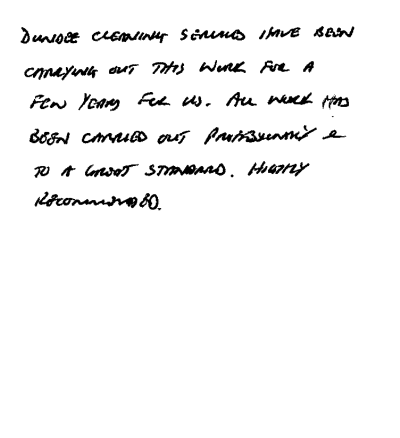 DUNDEE CLEANING SERVICES HAVE BEEN
CARRYING OUT THIS WORK FOR A
FEW YEARS FOR US. ALL WORK HAS
BEEN CARRIED OUT PROFESSIONALLY &
TO A GREAT STANDARD. HIGHLY
RECOMMENDED.